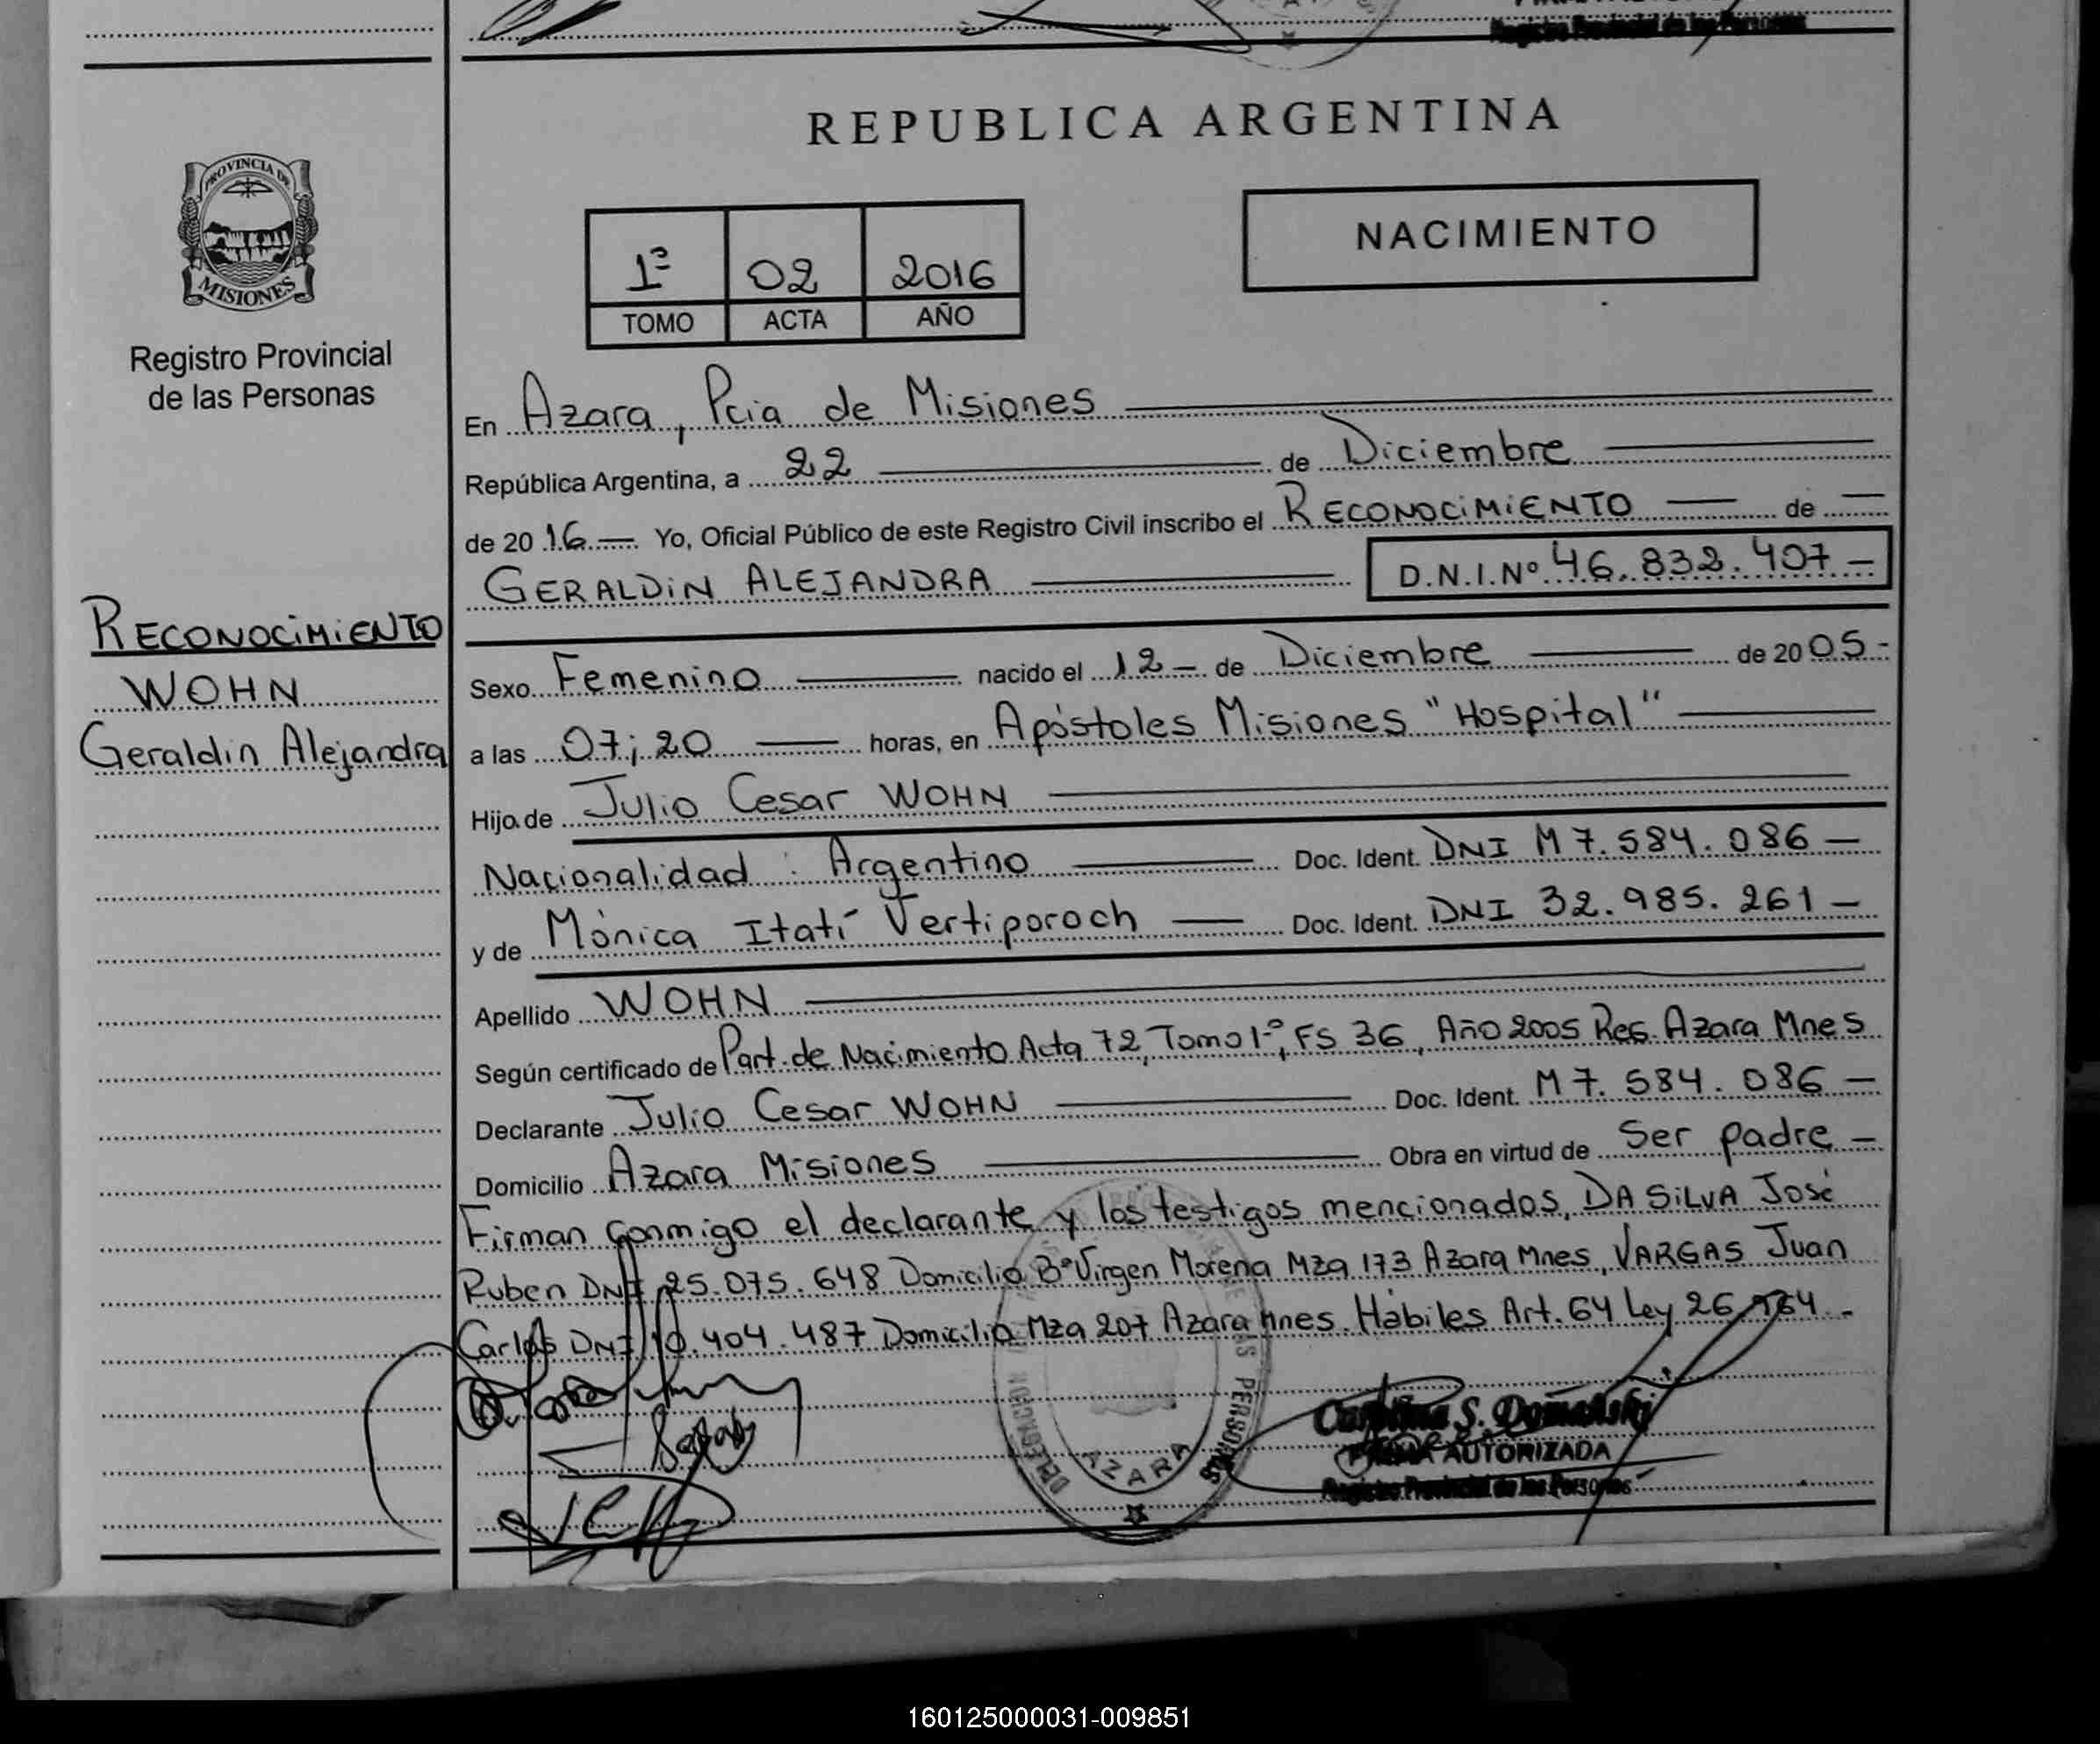 REPUBLICA ARGENTINA
PROVINCIA DE
MISIONES
Registro Provincial
de las Personas
1º 02 2016
TOMO ACTA AÑO
NACIMIENTO
En Azara, Pcia de Misiones
República Argentina, a 22 de Diciembre
de 2016 Yo, Oficial Público de este Registro Civil inscribo el RECONOCIMIENTO de
GERALDIN ALEJANDRA D.N.I.Nº 46.832.407
RECONOCIMIENTO
WOHN
Geraldin Alejandra
Sexo Femenino nacido el 12 de Diciembre de 2005
a las 07;20 horas, en Apóstoles Misiones "Hospital"
Hijo de Julio Cesar WOHN
Nacionalidad: Argentino Doc. Ident. DNI M 7.584.086
y de Mónica Itatí Vertiporoch Doc. Ident. DNI 32.985.261
Apellido WOHN
Según certificado de Part. de Nacimiento Acta 72, Tomo 1º, FS 36, Año 2005 Reg. Azara Mnes
Declarante Julio Cesar WOHN Doc. Ident. M 7.584.086
Domicilio Azara Misiones Obra en virtud de Ser padre
Firman conmigo el declarante y los testigos mencionados, DA SILVA José
Ruben DNI 25.075.648 Domicilio Bº Virgen Morena Mza 173 Azara Mnes, VARGAS Juan
Carlos DNI 10.404.487 Domicilio Mza 207 Azara Mnes. Hábiles Art. 64 Ley
DELEGACION
AZARA
PERSONAS
S. Domanski
FIRMA AUTORIZADA
Registro Provincial de las Personas
160125000031-009851